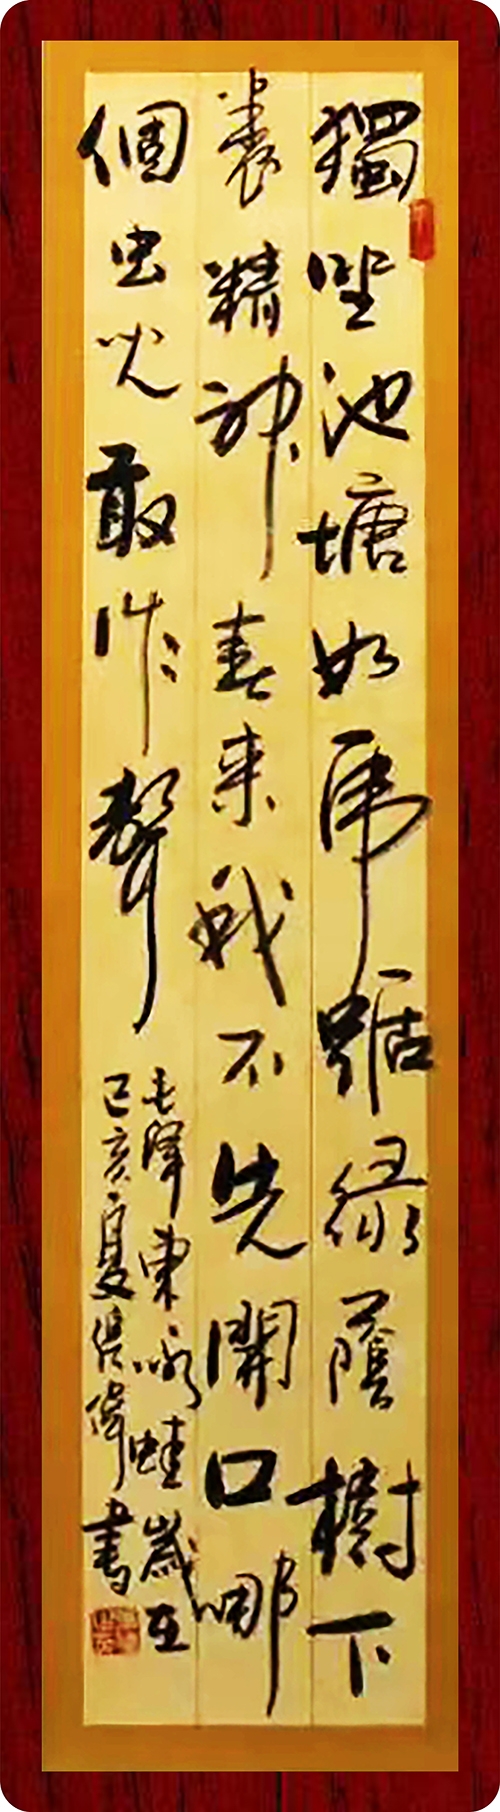 獨坐池塘如虎踞綠蔭樹下
養精神春來我不先開口哪
個虫兒敢作聲
毛澤東咏蛙歲在
己亥夏張偉書